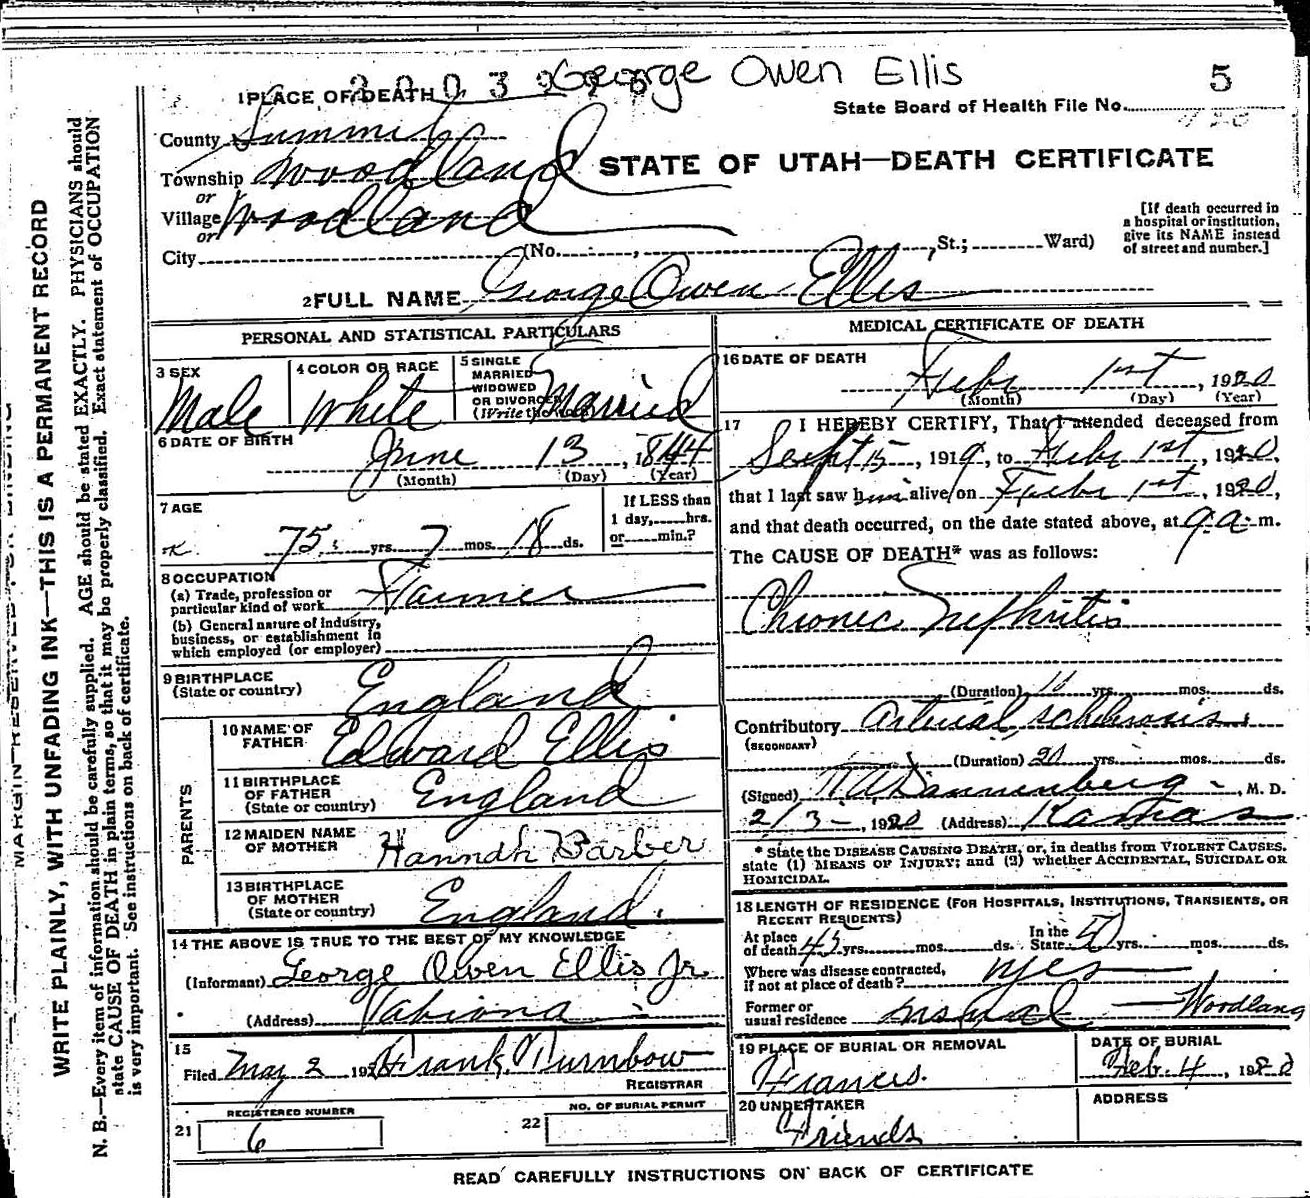 George Owen Ellis
5
1 PLACE OF DEATH
State Board of Health File No.
County Summit
STATE OF UTAH—DEATH CERTIFICATE
Township Woodland
or
Village Woodland
or
City (No. , St.; Ward)
[If death occurred in
a hospital or institution,
give its NAME instead
of street and number.]
2 FULL NAME George Owen Ellis
PERSONAL AND STATISTICAL PARTICULARS
3 SEX
Male
4 COLOR OR RACE
White
5 SINGLE
MARRIED
WIDOWED
OR DIVORCED
(Write the word)
Married
6 DATE OF BIRTH
June 13, 1844
(Month) (Day) (Year)
7 AGE
75 yrs. 7 mos. 18 ds.
If LESS than
1 day, hrs.
or min.?
8 OCCUPATION
(a) Trade, profession or
particular kind of work Farmer
(b) General nature of industry,
business, or establishment in
which employed (or employer)
9 BIRTHPLACE
(State or country) England
PARENTS
10 NAME OF
FATHER Edward Ellis
11 BIRTHPLACE
OF FATHER
(State or country) England
12 MAIDEN NAME
OF MOTHER Hannah Barber
13 BIRTHPLACE
OF MOTHER
(State or country) England.
14 THE ABOVE IS TRUE TO THE BEST OF MY KNOWLEDGE
(Informant) George Owen Ellis Jr.
(Address) Tabiona
15
Filed May 2 192 Frank Turnbow
REGISTRAR
REGISTERED NUMBER
21 6
NO. OF BURIAL PERMIT
22
MEDICAL CERTIFICATE OF DEATH
16 DATE OF DEATH
Febr 1st, 1920
(Month) (Day) (Year)
17 I HEREBY CERTIFY, That I attended deceased from
Sept 15, 1919, to Febr 1st, 1920,
that I last saw him alive on Febr 1st, 1920,
and that death occurred, on the date stated above, at 9 a. m.
The CAUSE OF DEATH* was as follows:
Chronic Nephritis
(Duration) 10 yrs. mos. ds.
Contributory Arterial schlerosis
(SECONDARY)
(Duration) 20 yrs. mos. ds.
(Signed) Dannenberg, M. D.
2/3-, 1920 (Address) Kamas
* State the DISEASE CAUSING DEATH, or, in deaths from VIOLENT CAUSES,
state (1) MEANS OF INJURY; and (2) whether ACCIDENTAL, SUICIDAL OR
HOMICIDAL.
18 LENGTH OF RESIDENCE (FOR HOSPITALS, INSTITUTIONS, TRANSIENTS, OR
RECENT RESIDENTS)
At place
of death 45 yrs. mos. ds.
In the
State yrs. mos. ds.
Where was disease contracted,
if not at place of death? yes
Former or
usual residence usual Woodland
19 PLACE OF BURIAL OR REMOVAL
Francis.
DATE OF BURIAL
Feb. 4, 1920
20 UNDERTAKER
Friends
ADDRESS
READ CAREFULLY INSTRUCTIONS ON BACK OF CERTIFICATE
MARGIN RESERVED FOR BINDING
WRITE PLAINLY, WITH UNFADING INK—THIS IS A PERMANENT RECORD
N. B.—Every item of information should be carefully supplied. AGE should be stated EXACTLY. PHYSICIANS should
state CAUSE OF DEATH in plain terms, so that it may be properly classified. Exact statement of OCCUPATION
is very important. See instructions on back of certificate.